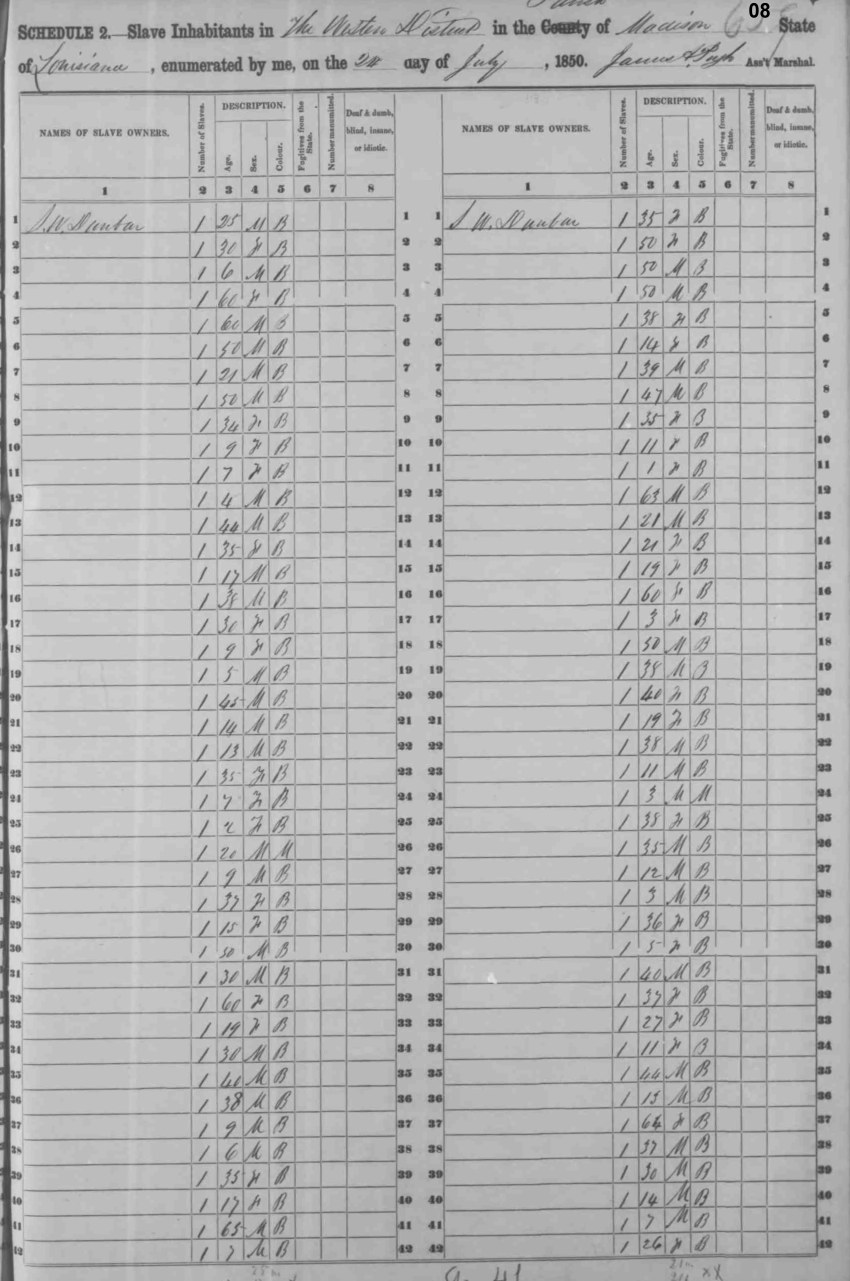 08
Parish
SCHEDULE 2.—Slave Inhabitants in The Western District in the County of Madison State
of Louisiana, enumerated by me, on the day of July, 1850. James Ass't Marshal.
NAMES OF SLAVE OWNERS. Number of Slaves. DESCRIPTION. Age. Sex. Colour. Fugitives from the State. Number manumitted. Deaf & dumb, blind, insane, or idiotic. NAMES OF SLAVE OWNERS. Number of Slaves. DESCRIPTION. Age. Sex. Colour. Fugitives from the State. Number manumitted. Deaf & dumb, blind, insane, or idiotic.
1 2 3 4 5 6 7 8 1 2 3 4 5 6 7 8
1 S. W. Dunbar 1 25 M B 1 1 S W. Dunbar 1 35 F B 1
2 1 30 F B 2 2 1 50 F B 2
3 1 6 M B 3 3 1 50 M B 3
4 1 60 F B 4 4 1 50 M B 4
5 1 60 M B 5 5 1 38 F B 5
6 1 50 M B 6 6 1 14 F B 6
7 1 21 M B 7 7 1 39 M B 7
8 1 50 M B 8 8 1 47 M B 8
9 1 34 F B 9 9 1 35 F B 9
10 1 9 F B 10 10 1 11 F B 10
11 1 7 F B 11 11 1 1 F B 11
12 1 4 M B 12 12 1 63 M B 12
13 1 44 M B 13 13 1 21 M B 13
14 1 35 F B 14 14 1 21 F B 14
15 1 17 M B 15 15 1 19 F B 15
16 1 38 M B 16 16 1 60 F B 16
17 1 30 F B 17 17 1 3 F B 17
18 1 9 F B 18 18 1 50 M B 18
19 1 5 M B 19 19 1 38 M B 19
20 1 45 M B 20 20 1 40 F B 20
21 1 14 M B 21 21 1 19 F B 21
22 1 13 M B 22 22 1 38 M B 22
23 1 35 F B 23 23 1 11 M B 23
24 1 7 F B 24 24 1 3 M M 24
25 1 2 F B 25 25 1 38 F B 25
26 1 20 M M 26 26 1 35 M B 26
27 1 9 M B 27 27 1 12 M B 27
28 1 37 F B 28 28 1 3 M B 28
29 1 15 F B 29 29 1 36 F B 29
30 1 50 M B 30 30 1 5 F B 30
31 1 30 M B 31 31 1 40 M B 31
32 1 60 F B 32 32 1 37 F B 32
33 1 19 F B 33 33 1 27 F B 33
34 1 30 M B 34 34 1 11 F B 34
35 1 40 M B 35 35 1 44 M B 35
36 1 38 M B 36 36 1 13 M B 36
37 1 9 M B 37 37 1 64 F B 37
38 1 6 M B 38 38 1 37 M B 38
39 1 35 F B 39 39 1 30 M B 39
40 1 17 F B 40 40 1 14 M B 40
41 1 65 M B 41 41 1 7 M B 41
42 1 7 M B 42 42 1 26 F B 42